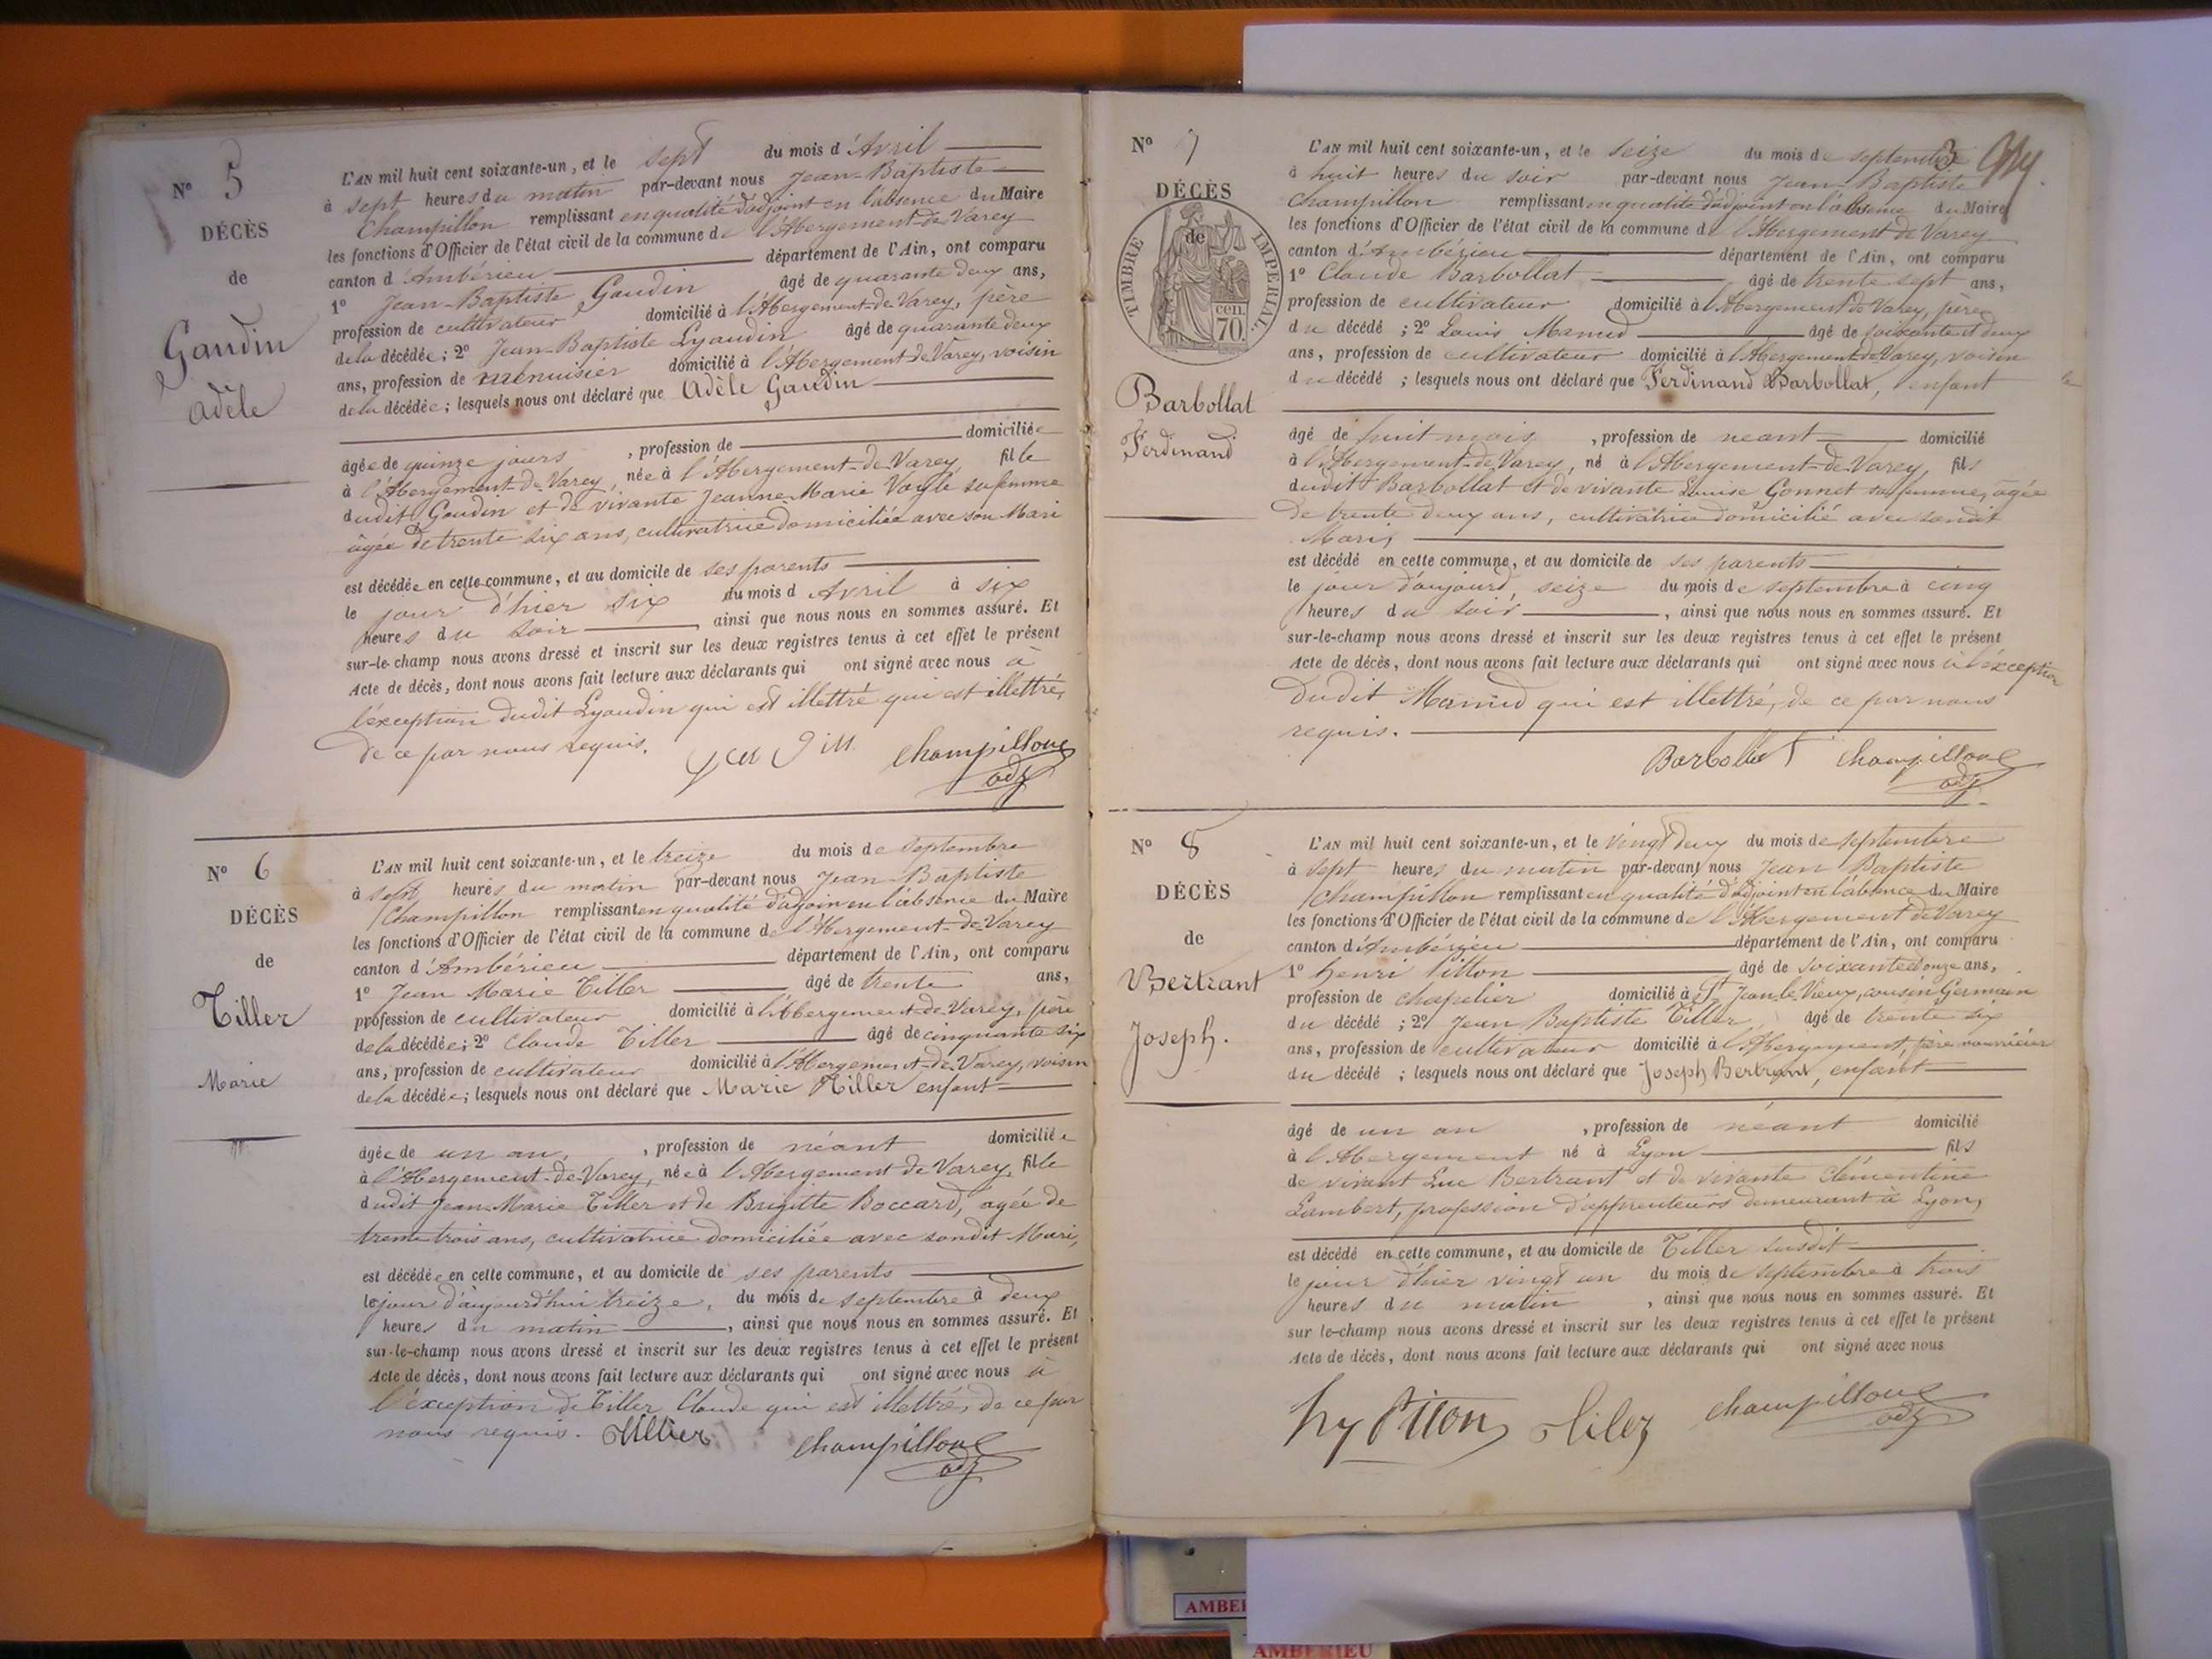 N° 5
DÉCÈS
de
Gaudin
Adèle
L'AN mil huit cent soixante-un, et le sept du mois d'Avril
à sept heures du matin par-devant nous Jean-Baptiste
Champillon remplissant en qualité d'adjoint en l'absence du Maire
les fonctions d'Officier de l'état civil de la commune de l'Abergement-de-Varey
canton d'Ambérieu département de l'Ain, ont comparu
1° Jean-Baptiste Gaudin âgé de quarante deux ans,
profession de cultivateur domicilié à l'Abergement-de-Varey, père
de la décédée; 2° Jean-Baptiste Lyaudin âgé de quarante deux
ans, profession de menuisier domicilié à l'Abergement-de-Varey, voisin
de la décédée; lesquels nous ont déclaré que Adèle Gaudin
âgée de quinze jours, profession de domiciliée
à l'Abergement-de-Varey, née à l'Abergement-de-Varey fille
dudit Gaudin et de vivante Jeanne-Marie sa femme
âgée de trente six ans, cultivatrice domiciliée avec son Mari
est décédée en cette commune, et au domicile de ses parents
le jour d'hier six du mois d'Avril à six
heures du soir, ainsi que nous nous en sommes assuré. Et
sur-le-champ nous avons dressé et inscrit sur les deux registres tenus à cet effet le présent
Acte de décès, dont nous avons fait lecture aux déclarants qui ont signé avec nous à
l'éxception dudit Lyaudin qui est illettré qui est illettré,
de ce par nous requis.
Champillon
adj
N° 6
DÉCÈS
de
Tiller
Marie
L'AN mil huit cent soixante-un, et le treize du mois de septembre
à sept heures du matin par-devant nous Jean-Baptiste
Champillon remplissant en qualité d'adjoin en l'absence du Maire
les fonctions d'Officier de l'état civil de la commune de l'Abergement-de-Varey
canton d'Ambérieu département de l'Ain, ont comparu
1° Jean Marie Tiller âgé de trente ans,
profession de cultivateur domicilié à l'Abergement-de-Varey, père
de la décédée; 2° Claude Tiller âgé de cinquante six
ans, profession de cultivateur domicilié à l'Abergement-de-Varey, voisin
de la décédée; lesquels nous ont déclaré que Marie Tiller enfant
âgée de un an, profession de néant domiciliée
à l'Abergement-de-Varey, née à l'Abergement de Varey, fille
dudit Jean-Marie Tiller et de Brigitte Boccard, agée de
trente trois ans, cultivatrice domiciliée avec sondit Mari,
est décédée en cette commune, et au domicile de ses parents
le jour d'aujourd'hui treize, du mois de septembre à deux
heures du matin, ainsi que nous nous en sommes assuré. Et
sur-le-champ nous avons dressé et inscrit sur les deux registres tenus à cet effet le présent
Acte de décès, dont nous avons fait lecture aux déclarants qui ont signé avec nous à
l'éxception de Tiller Claude qui est illettré, de ce par
nous requis. Tillier
Champillon
adj
N° 7
DÉCÈS
de
TIMBRE IMPÉRIAL
cen.
70.
Barbollat
Ferdinand
3
L'AN mil huit cent soixante-un, et le seize du mois de septembre
à huit heures du soir par-devant nous Jean-Baptiste
Champillon remplissant en qualité d'adjoint en l'absence du Maire
les fonctions d'Officier de l'état civil de la commune de l'Abergement de Varey
canton d'Ambérieu département de l'Ain, ont comparu
1° Claude Barbollat âgé de trente sept ans,
profession de cultivateur domicilié à l'Abergement de Varey, père
du décédé; 2° Louis Mamid âgé de soixante et deux
ans, profession de cultivateur domicilié à l'Abergement-de-Varey, voisin
du décédé; lesquels nous ont déclaré que Ferdinand Barbollat, enfant
âgé de huit mois, profession de neant domicilié
à l'Abergement-de-Varey, né à l'Abergement-de-Varey, fils
dudit Barbollat et de vivante Louise Gonnet sa femme, âgée
de trente deux ans, cultivatrice domicilié avec sondit
Mari,
est décédé en cette commune, et au domicile de ses parents
le jour d'aujourd, seize du mois de septembre à cinq
heures du soir, ainsi que nous nous en sommes assuré. Et
sur-le-champ nous avons dressé et inscrit sur les deux registres tenus à cet effet le présent
Acte de décès, dont nous avons fait lecture aux déclarants qui ont signé avec nous à l'éxception
dudit Mamid qui est illettré, de ce par nous
requis.
Barbollat Champillon
adj
N° 8
DÉCÈS
de
Bertrant
Joseph.
L'AN mil huit cent soixante-un, et le vingt deux du mois de septembre
à sept heures du matin par-devant nous Jean Baptiste
Champillon remplissant en qualité d'adjoint en l'absence du Maire
les fonctions d'Officier de l'état civil de la commune de l'Abergement de Varey
canton d'Ambérieu département de l'Ain, ont comparu
1° henri Pitton âgé de soixante donze ans,
profession de chapelier domicilié à St Jean-le-Vieux, cousin Germain
du décédé; 2° Jean Baptiste Tiller âgé de trente six
ans, profession de cultivateur domicilié à l'Abergement, père nourricier
du décédé; lesquels nous ont déclaré que Joseph Bertrant, enfant
âgé de un an, profession de néant domicilié
à l'Abergement né à Lyon fils
de vivant Luc Bertrant et de vivante Clémentine
Lambert, profession d'apprenteurs demeurant à Lyon,
est décédé en cette commune, et au domicile de Tiller susdit
le jour d'hier vingt un du mois de septembre à trois
heures du matin, ainsi que nous nous en sommes assuré. Et
sur le-champ nous avons dressé et inscrit sur les deux registres tenus à cet effet le présent
Acte de décès, dont nous avons fait lecture aux déclarants qui ont signé avec nous
hy Pitton Tiler Champillon
adj
AMBE
AMBERIEU